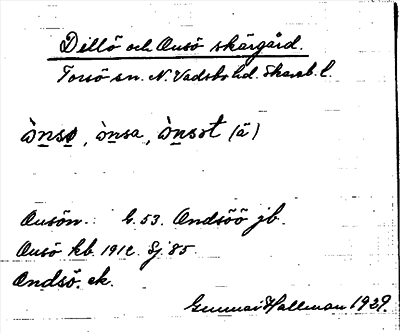 Dillö och Onsö skärgård.
Torsö sn. N. Vadsbo hd. Skarab. l.
ò̀nso, ò̀nsa, ò̀nsot (ä)
Onsön. G. 53. Andsöö jb.
Onsö kb. 1912. Sj. 85.
Andsö. ek.
Gunnar Hallman 1929.